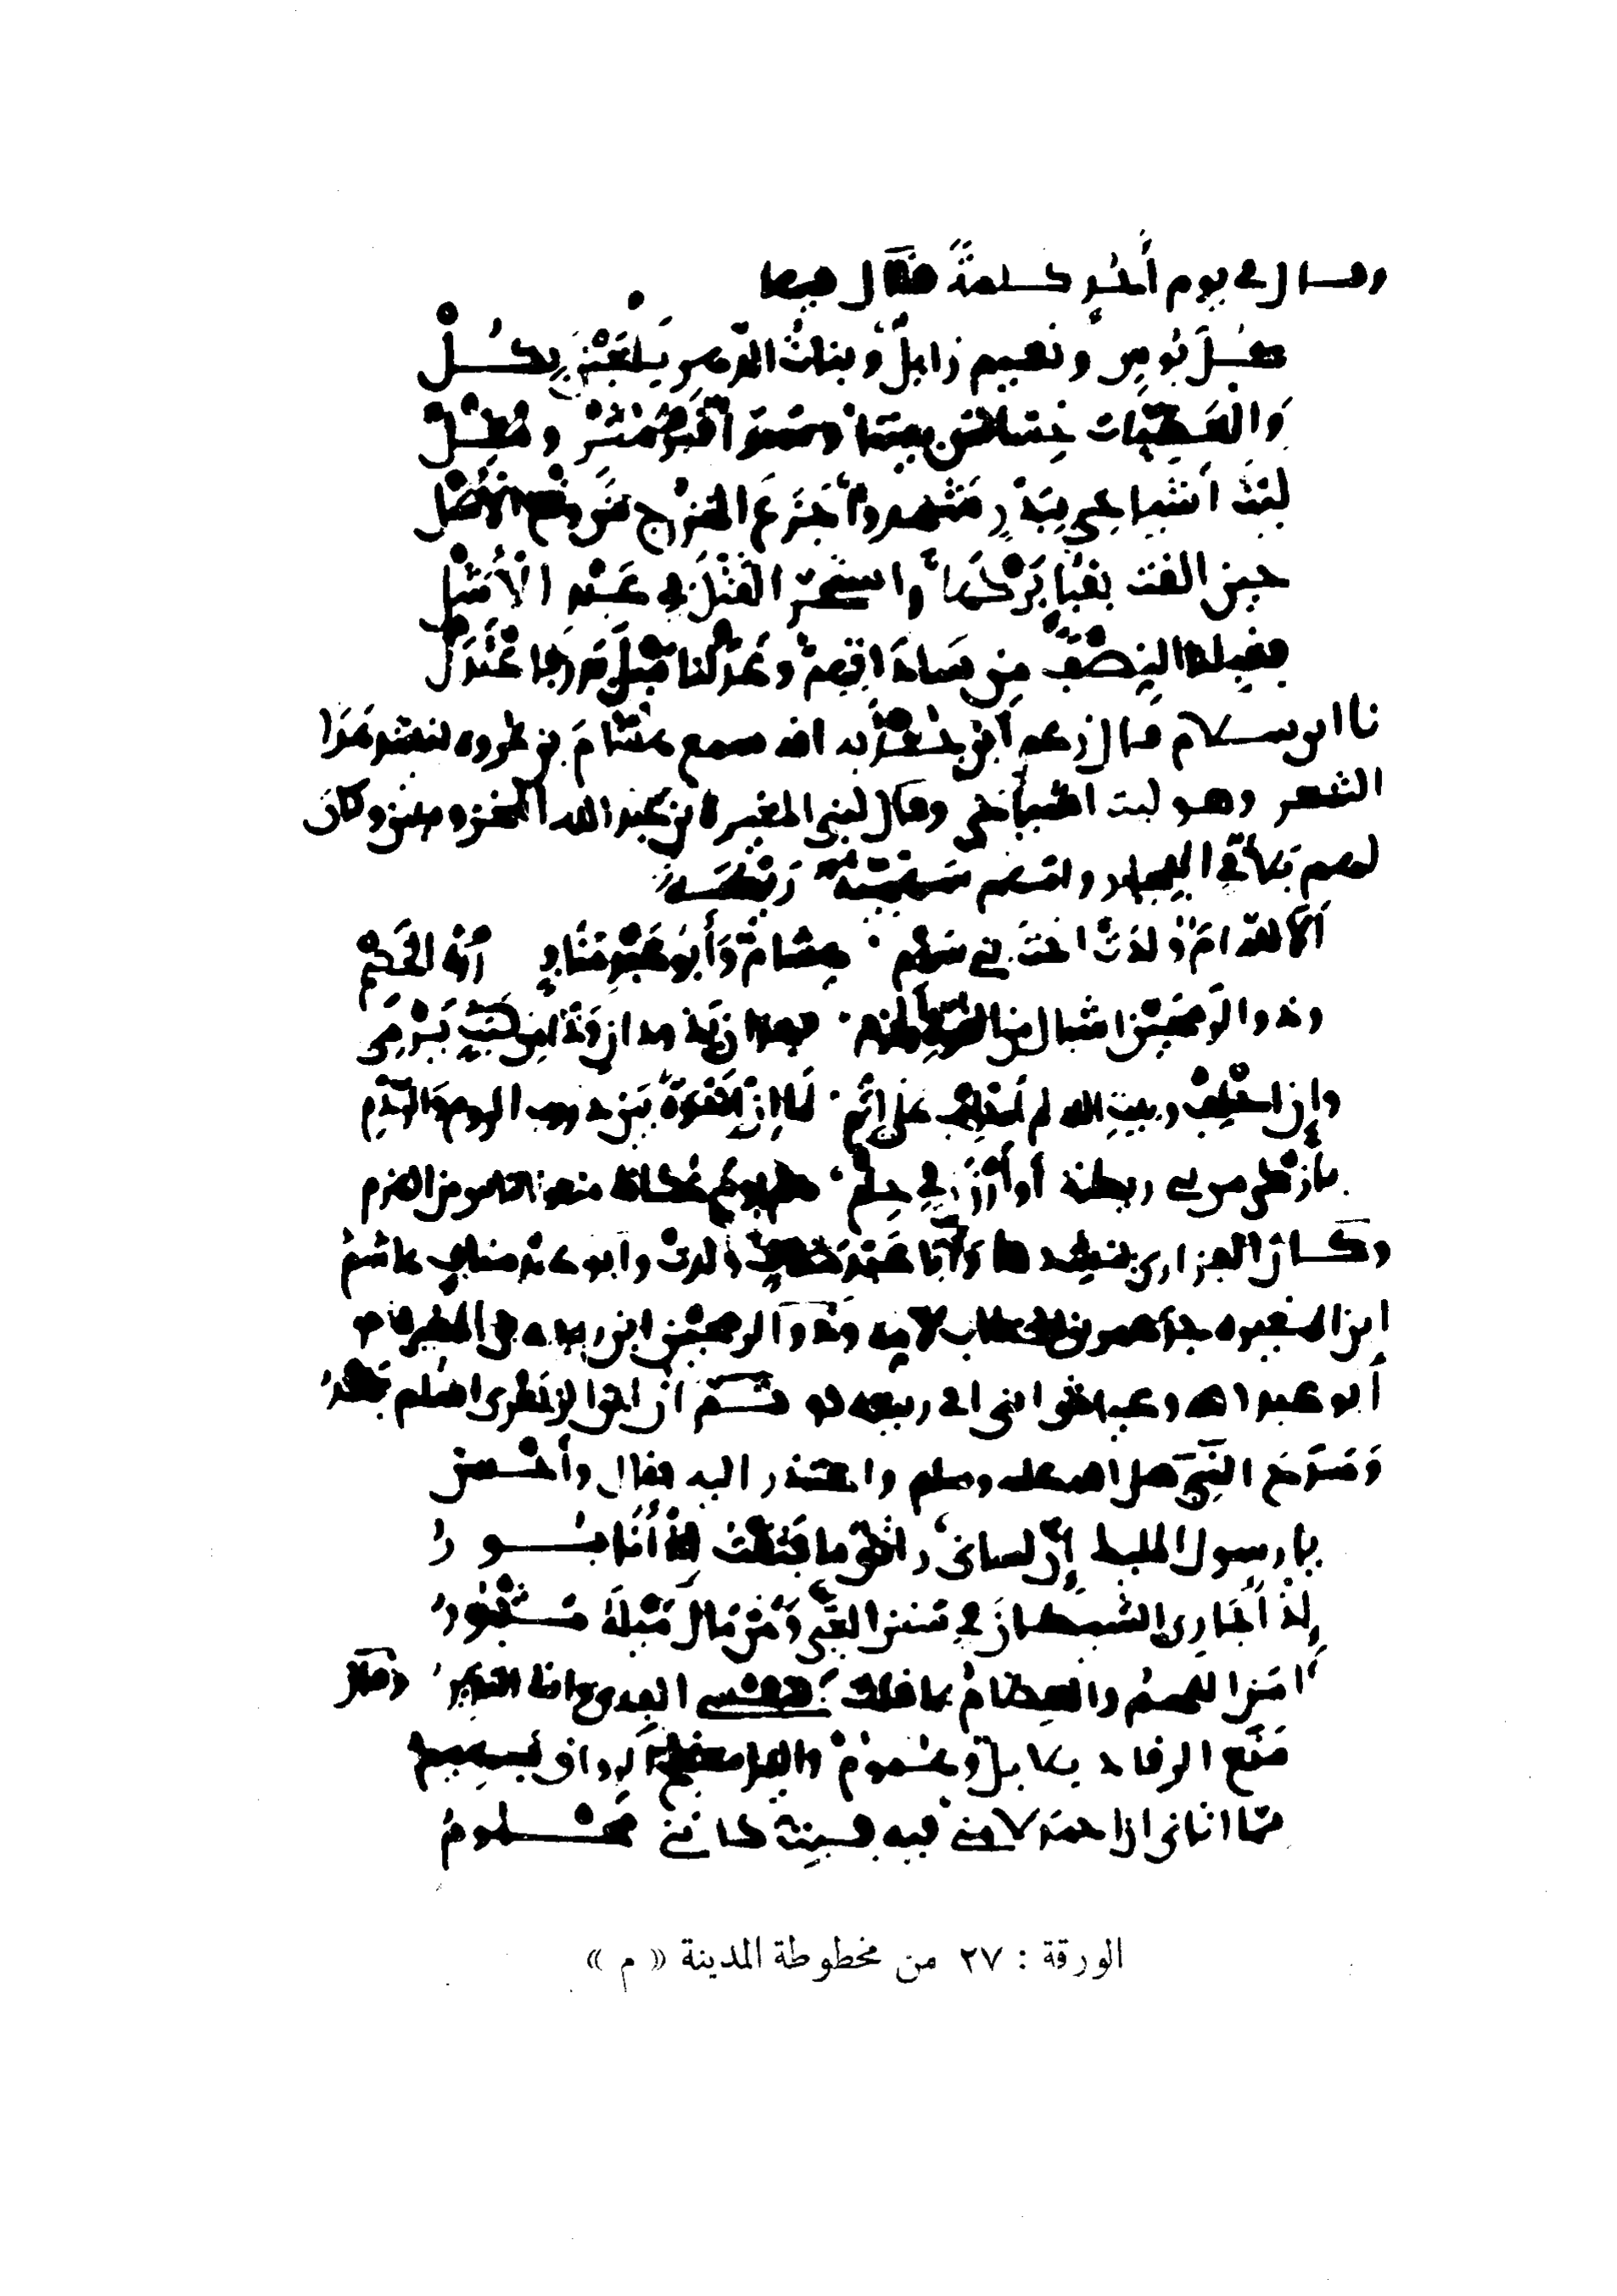 وقال في يوم أُحُدٍ كلمةً فقَال فيها
كُلُّ بُوسٍ ونعيم زايلٌ وبناتُ الدّهرِ يَلعَبْنَ بِكُلْ
وَالعَطِيّات خِسَاسٌ بيننا وسَوَا قَبْرُ مُثْرٍ ومُقِلْ
ليْتَ أشيَاخي بِبَدْرٍ شَهِدوا جَزَعَ الخزرج مِن وقع الأَسَلْ
حين القت بقُبَا بَرْكَها واستَحَرّ القَتْلُ في عَبْدِ الأَشَلْ
فقبلنا النِصْفَ مِن سَادَاتِهِمْ وعَدَلْنا مَيْلَ بَدرٍ فاعْتَدَلْ
نا ابن سلام قال زعم ابن جُعْدُبه انه سمع هشَامَ بن عروه ينشد هَذَا
الشعر وهو ليت اشياخي وقال لبني المغيرة بن عبد الله المخزومين وكان
لهم بَلَاءٌ في الفِجَار وامهم رَيْطَة
أَلَا لله قومٌ وَلَدَتْ اختُ بني سَهْمٍ هِشامٌ وَأَبُو عَبْدِ مَنَافٍ مِدْرَهُ الخَصْمِ
وذو الرمحَيْن اشبال من القوة والحزم فهذان يَذودان وَذَا مِن كَثَبٍ يَرْمِي
وإن احْلِفْ وبيتِ الله لم أحْلِفْ على إثْمٍ لَمَا إن إخْوَةٌ بَيْنَ دروب الروم والرَّدْمِ
بأزكى من بني ريطة أو أَوْزَنَ في حِلْمِ هم يوم عُكاظ منعوا الناس من الهزم
وكان الفزاري ينشدها وَأبَا عَبْدَ مَنَافٍ ولدت وابو عبد مناف هاشم
ابن المغيره جد عمر بن الخطاب لامه وذو الرمحين ابن ربيعه بن المغيره
أبو عبد الله وعياش ابني ابي ربيعه ثم إن ابن الزبعرى اسلم بَعْدُ
وَمَدَحَ النَبِيَّ صلى الله عليه وسلم واعتذر اليه فقال وأحْسن
يا رسول المليك إِنّ لساني راتِقٌ ما فَتَقْتُ إذْ أَنَا بُورُ
إِذْ أُجَارِي الشيطانَ في سَنَنِ الغَيِّ وَمَنْ مَالَ مَيْلَهُ مَثْبُورُ
آمَنَ اللحمُ والعِظامُ بما قلت فنفسي الفِدى وانت النذير وقال
مَنَعَ الرقاد بلابلٌ وهُمومُ والليل معتلج الرواق بَهيمُ
مّما اتاني ان احمد لامَني فيه فبِتُّ كانّني مَحْمومُ
الورقة : ٢٧ من مخطوطة المدينة « م »